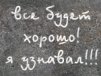 все будет
хорошо!
я узнавал!!!